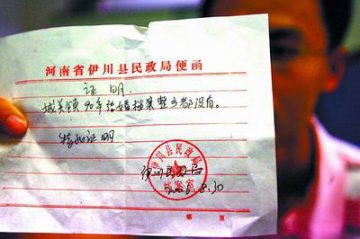 河南省伊川县民政局便函
证明
城关镇90年结婚档案整乡都没有。
特此证明
伊川县民政局
档案室
8.30
第 页